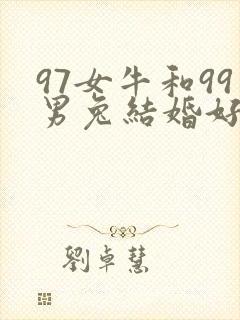 97女牛和99
男兔結婚好
劉卓慧